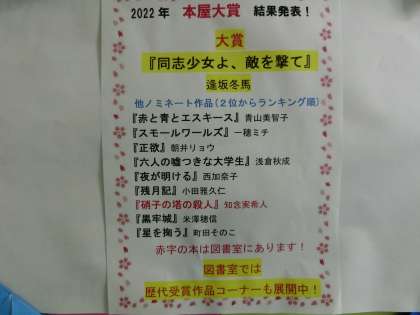 2022年 本屋大賞 結果発表！
大賞
『同志少女よ、敵を撃て』
逢坂冬馬
他ノミネート作品（２位からランキング順）
『赤と青とエスキース』青山美智子
『スモールワールズ』一穂ミチ
『正欲』朝井リョウ
『六人の嘘つきな大学生』浅倉秋成
『夜が明ける』西加奈子
『残月記』小田雅久仁
『硝子の塔の殺人』知念実希人
『黒牢城』米澤穂信
『星を掬う』町田そのこ
赤字の本は図書室にあります！
図書室では
歴代受賞作品コーナーも展開中！